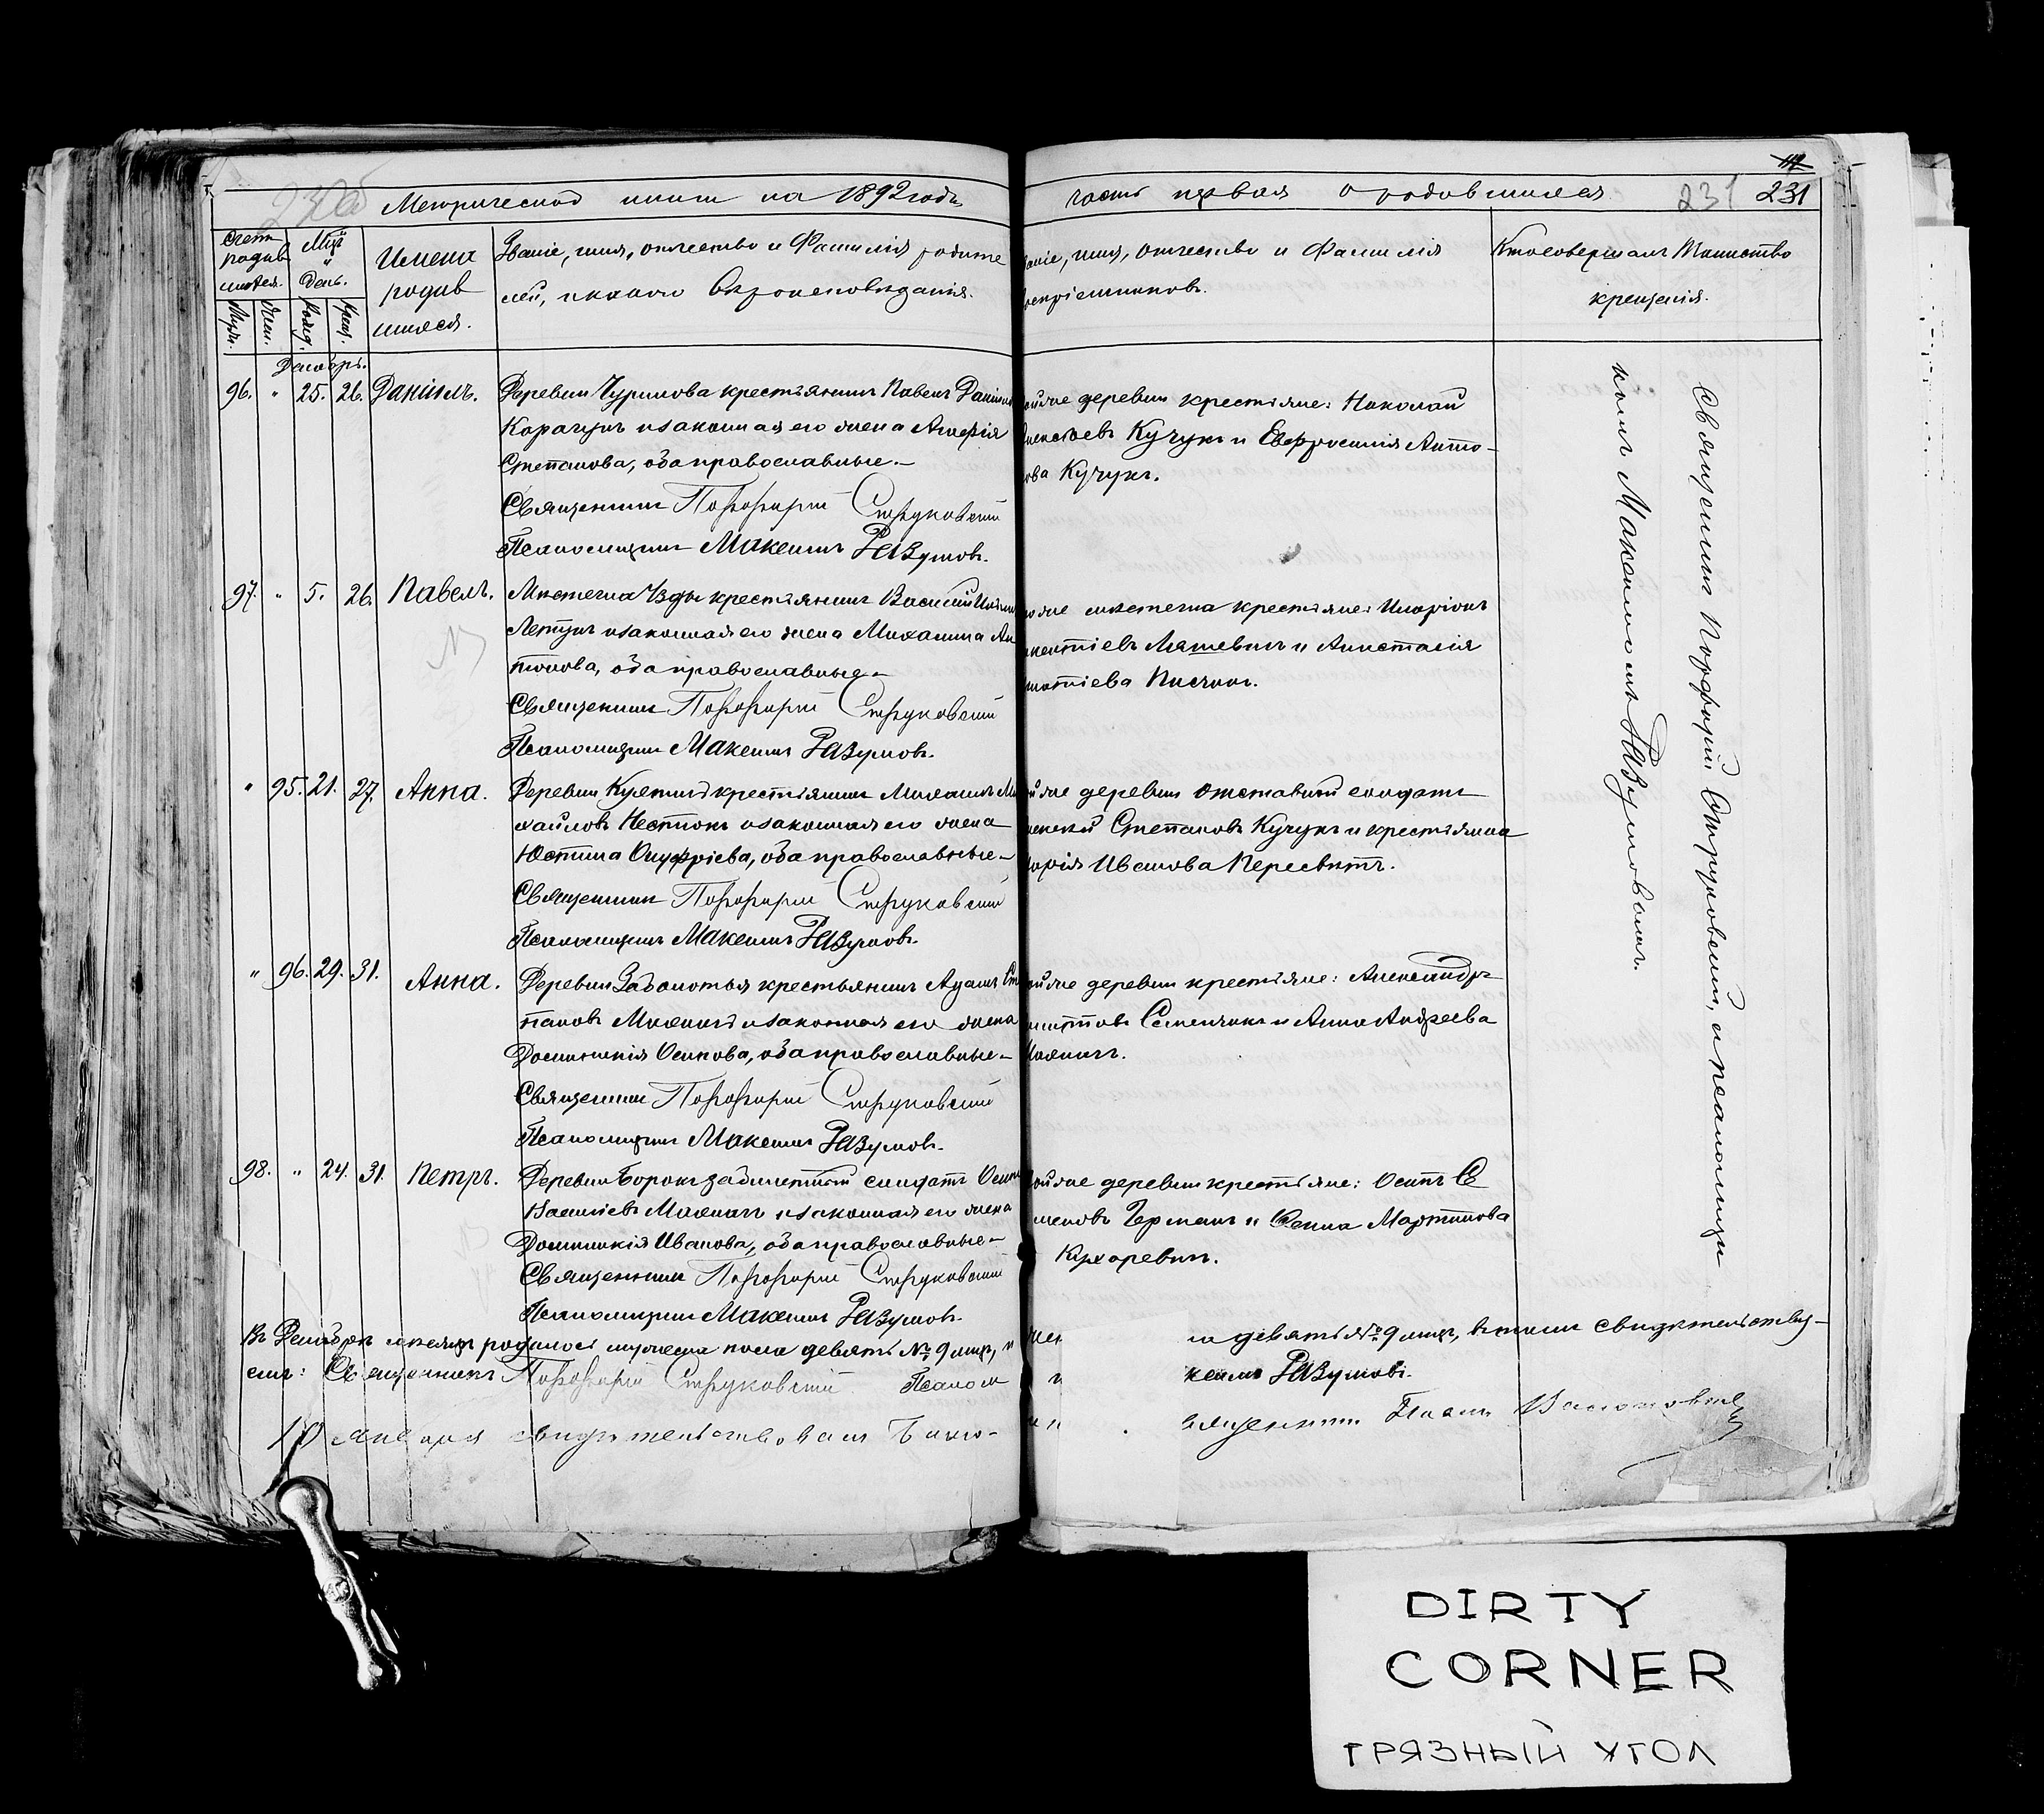 231 231
Метрической книги на 1892 годъ часть первая о родившихся
Счетъ родив шихся.
Муж.
Жен.
Мцъ и день.
Рожд.
Крещ.
Имена
родив
шихся.
Званіе, имя, отчество и фамилія родите
лей, и какого вѣроисповѣданія.
Званіе, имя, отчество и фамилія
воспріемниковъ.
Кто совершалъ таинство
крещенія.
Декабрь.
96. " 25. 26. Даніилъ.
Деревни Чурилова крестьянинъ Павелъ Даніиловъ
Карагунъ и законная его жена Агафія
Степанова, оба православные.—
Священникъ Порфирій Струковскій
Псаломщикъ Максимъ Разумовъ.
той же деревни крестьяне: Николай
Кучукъ и Евфросинія Анто-
нова Кучукъ.
97. " 5. 26. Павелъ.
Мѣстечка Узды крестьянинъ Василій
Летунъ и законная его жена Михалина Ан
тонова, оба православные—
Священникъ Порфирій Струковскій
Псаломщикъ Максимъ Разумовъ.
того же мѣстечка крестьяне: Иларіонъ
Ляшевичъ и Анастасія
" 95. 21. 27. Анна.
Деревни крестьянинъ Михаилъ Ми
хайловъ Нестюкъ и законная его жена
Юстина Онуфріева, оба православные—
Священникъ Порфирій Струковскій
Псаломщикъ Максимъ Разумовъ.
той же деревни отставной солдатъ
Степановъ Кучукъ и крестьянка
Марія Иванова Пересвѣтъ.
" 96. 29. 31. Анна.
Деревни Заболотья крестьянинъ Адамъ Сте
пановъ Махначъ и законная его жена
Доминикія Осипова, оба православные—
Священникъ Порфирій Струковскій
Псаломщикъ Максимъ Разумовъ.
той же деревни крестьяне: Александръ
Семенчикъ и Анна Андреева
Махначъ.
98. " 24. 31. Петръ.
Деревни Борокъ солдатъ Осипъ
Васильевъ Махначъ и законная его жена
Доминикія Иванова, оба православные—
Священникъ Порфирій Струковскій
Псаломщикъ Максимъ Разумовъ.
той же деревни крестьяне: Осипъ Се
меновъ Германъ и Ѳекла Мартинова
Кухаревичъ.
Священникъ Порфирій Струковскій, и псаломщи
комъ Максимомъ Разумовымъ.
Въ Декабрѣ мѣсяцѣ родилось мужеска пола девять № 9 лицъ, и жен
а девять № 9 лицъ, въ томъ свидѣтельству-
емъ: Священникъ Порфирій Струковскій Псалом
ксимъ Разумовъ.
10 Января свидѣтельствовалъ Благо-
вященникъ
DIRTY
CORNER
ГРЯЗНЫЙ УГОЛ